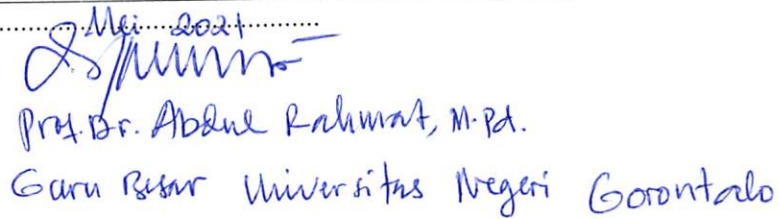 Mei 2021
Prof. Dr. Abdul Rahmat, M.Pd.
Guru Besar Universitas Negeri Gorontalo